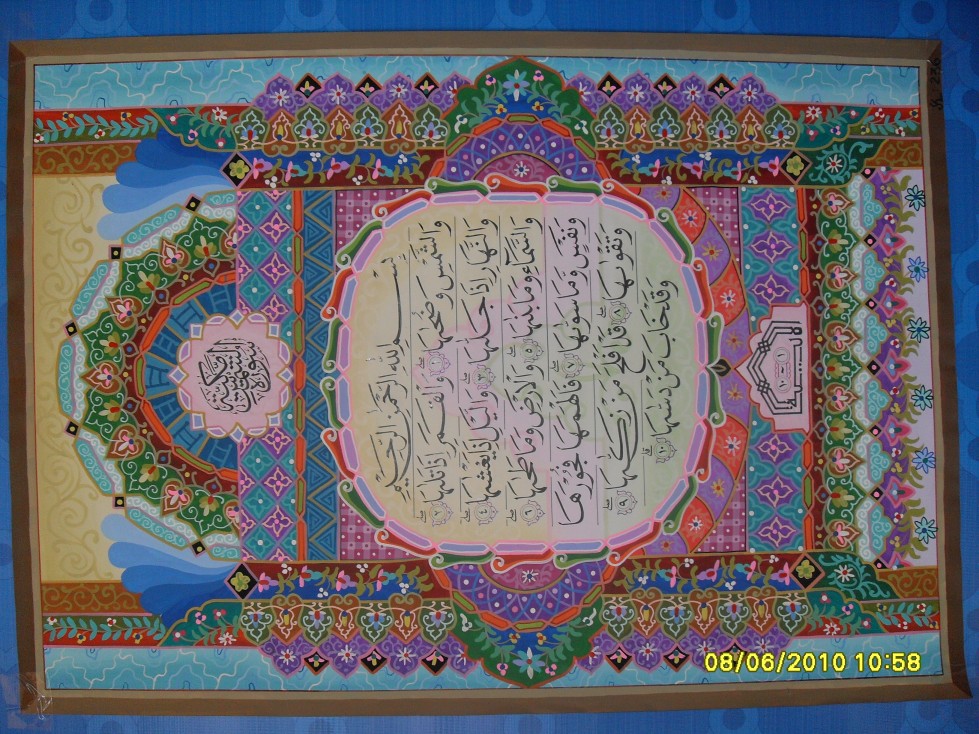 سورة الشمس مكية
بِسْمِ اللهِ الرَّحْمٰنِ الرَّحِيْمِ
وَالشَّمْسِ وَضُحٰىهَا ۝١ وَالْقَمَرِ اِذَا تَلٰىهَا ۝٢
وَالنَّهَارِ اِذَا جَلّٰىهَا ۝٣ وَالَّيْلِ اِذَا يَغْشٰىهَا ۝٤
وَالسَّمَاءِ وَمَا بَنٰىهَا ۝٥ وَالْاَرْضِ وَمَا طَحٰىهَا ۝٦
وَنَفْسٍ وَمَا سَوّٰىهَا ۝٧ فَاَلْهَمَهَا فُجُوْرَهَا
وَتَقْوٰىهَا ۝٨ قَدْ اَفْلَحَ مَنْ زَكّٰىهَا ۝٩
وَقَدْ خَابَ مَنْ دَسّٰىهَا ۝١٠
الاية
١-١٠
08/06/2010 10:58